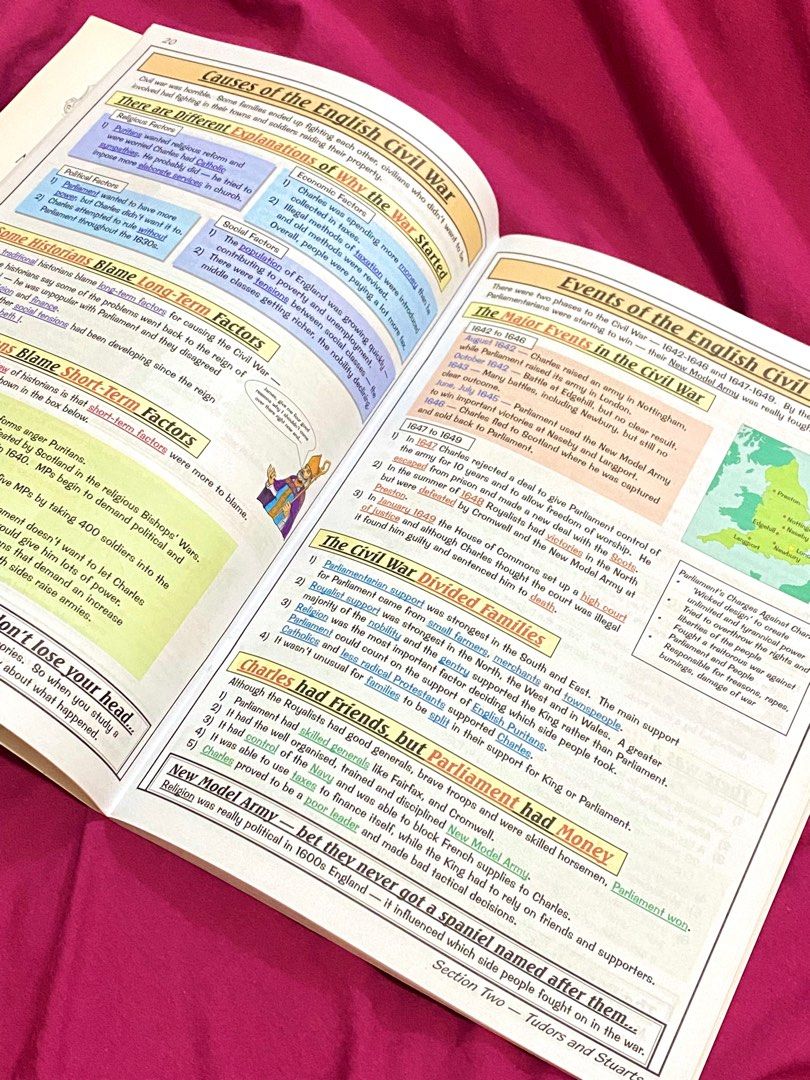 20
Causes of the English Civil War
Civil war was horrible. Some families ended up fighting each other, civilians who didn't want to be
involved had fighting in their towns and soldiers raiding their property.
There are Different Explanations of Why the War Started
Religious Factors
1) Puritans wanted religious reform and
were worried Charles had Catholic
sympathies. He probably did — he tried to
impose more elaborate services in church.
Political Factors
1) Parliament wanted to have more
power, but Charles didn't want it to.
2) Charles attempted to rule without
Parliament throughout the 1630s.
Economic Factors
1) Charles was spending more money than he
collected in taxes.
2) Illegal methods of taxation were introduced
and old methods were revived.
Overall, people were paying a lot more tax.
Social Factors
1) The population of England was growing quickly —
contributing to poverty and unemployment.
2) There were tensions between social classes — the
middle classes getting richer, the nobility declining.
Some Historians Blame Long-Term Factors
traditional historians blame long-term factors for causing the Civil War —
historians say some of the problems went back to the reign of
— he was unpopular with Parliament and they disagreed
and finance.
social tensions had been developing since the reign
Blame Short-Term Factors
of historians is that short-term factors were more to blame.
shown in the box below.
anger Puritans.
by Scotland in the religious Bishops' Wars.
1640. MPs begin to demand political and
five MPs by taking 400 soldiers into the
doesn't want to let Charles
would give him lots of power.
that demand an increase
sides raise armies.
don't lose your head...
So when you study a
about what happened.
Events of the English Civil
There were two phases to the Civil War — 1642-1646 and 1647-1649. By
Parliamentarians were starting to win — their New Model Army was really
The Major Events in the Civil War
1642 to 1646
August 1642 — Charles raised an army in Nottingham,
while Parliament raised its army in London.
October 1642 — Battle at Edgehill, but no clear result.
1643 — Many battles, including Newbury, but still no
clear outcome.
June, July 1645 — Parliament used the New Model Army
to win important victories at Naseby and Langport.
1646 — Charles fled to Scotland where he was captured
and sold back to Parliament.
Preston
Naseby
Edgehill
Langport
Newbury
1647 to 1649
1) In 1647 Charles rejected a deal to give Parliament control of
the army for 10 years and to allow freedom of worship. He
escaped from prison and made a new deal with the Scots.
2) In the summer of 1648 Royalists had victories in the North
but were defeated by Cromwell and the New Model Army at
Preston.
3) In January 1649 the House of Commons set up a high court
of justice and although Charles thought the court was illegal
it found him guilty and sentenced him to death.
Parliament's Charges Against
• 'Wicked design' to create
unlimited and tyrannical power
• Tried to overthrow the rights and
liberties of the people
• Fought a traitorous war against
Parliament and People
• Responsible for treasons, rapes,
burnings, damage of war
The Civil War Divided Families
1) Parliamentarian support was strongest in the South and East. The main support
for Parliament came from small farmers, merchants and townspeople.
2) Royalist support was strongest in the North, the West and in Wales. A greater
majority of the nobility and the gentry supported the King rather than Parliament.
3) Religion was the most important factor deciding which side people took.
Parliament could count on the support of English Puritans.
Catholics and less radical Protestants supported Charles.
4) It wasn't unusual for families to be split in their support for King or Parliament.
Charles had Friends, but Parliament had Money
Although the Royalists had good generals, brave troops and were skilled horsemen, Parliament won.
1) Parliament had skilled generals like Fairfax, and Cromwell.
2) It had the well organised, trained and disciplined New Model Army.
3) It had control of the Navy and was able to block French supplies to Charles.
4) It was able to use taxes to finance itself, while the King had to rely on friends and supporters.
5) Charles proved to be a poor leader and made bad tactical decisions.
New Model Army — bet they never got a spaniel named after them...
Religion was really political in 1600s England — it influenced which side people fought on in the war.
Section Two — Tudors and Stuarts